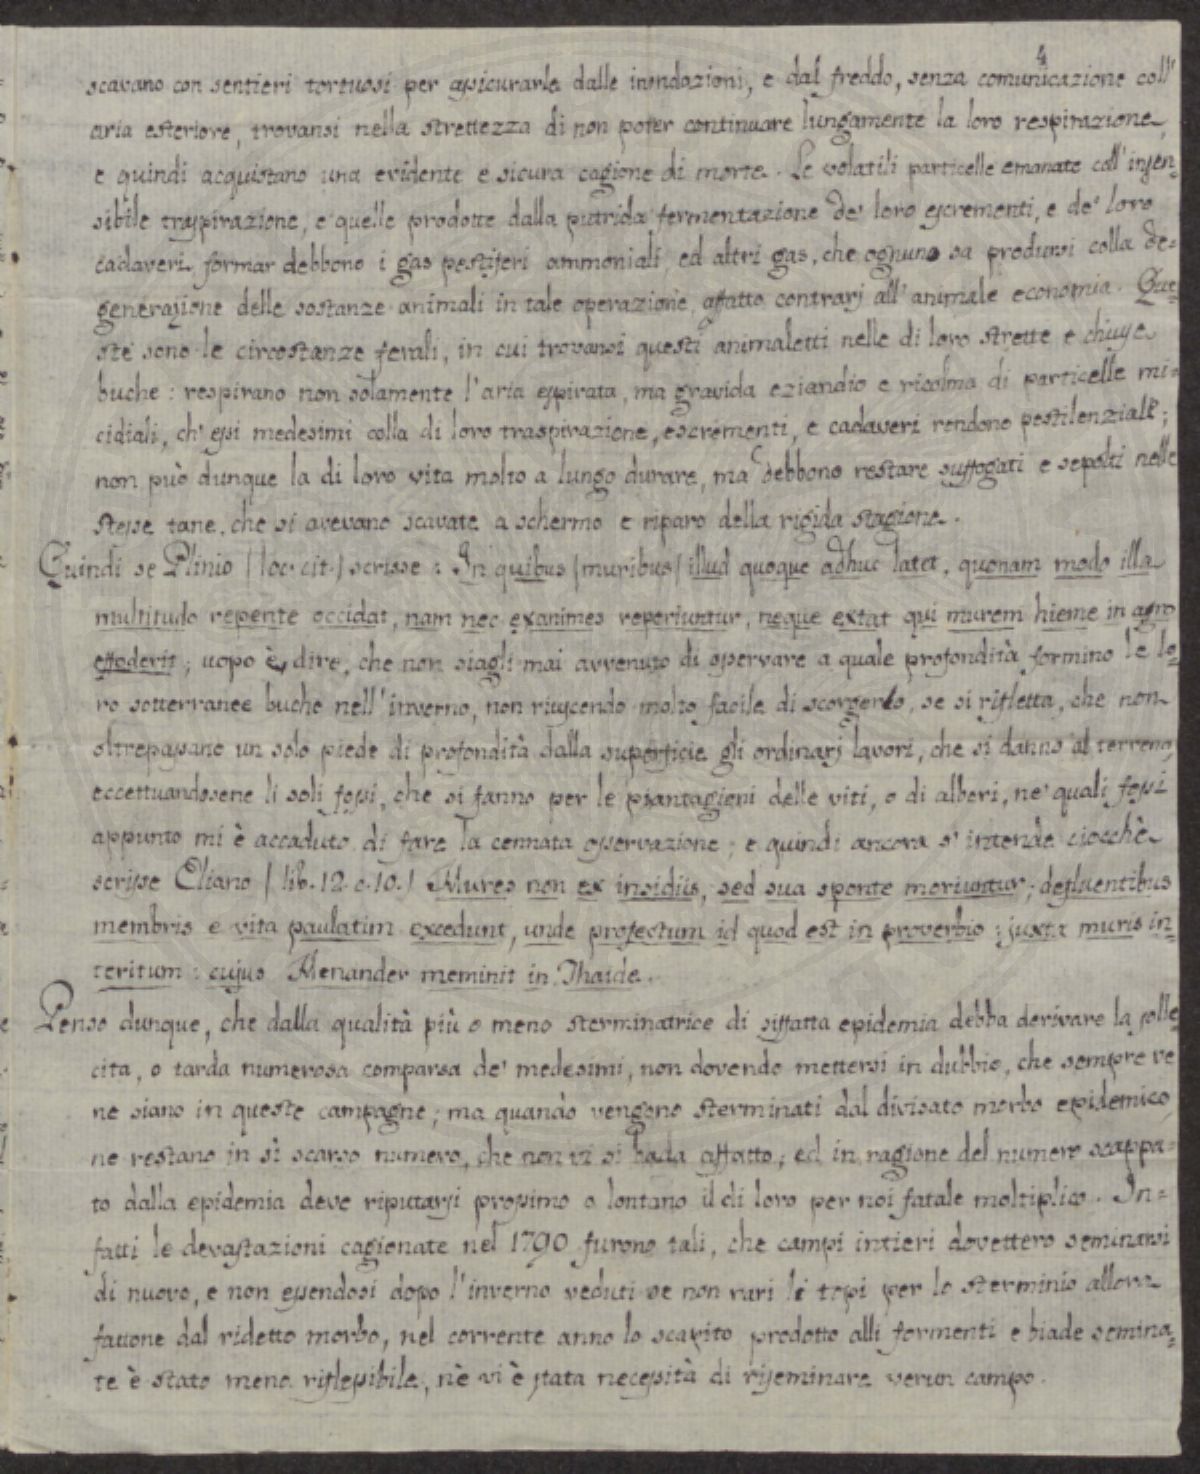 4
scavano con sentieri tortuosi per assicurarle dalle inondazioni, e dal freddo, senza comunicazione coll'
aria esteriore, trovansi nella strettezza di non poter continuare lungamente la loro respirazione,
e quindi acquistano una evidente e sicura cagione di morte. Le volatili particelle emanate coll'insen-
sibile traspirazione, e quelle prodotte dalla putrida fermentazione de' loro escrementi, e de' loro
cadaveri, formar debbono i gas pestiferi ammoniali, ed altri gas, che ognuno sa prodursi colla de=
generazione delle sostanze animali in tale operazione, affatto contrarj all'animale economia. Que=
ste sono le circostanze ferali, in cui trovansi questi animaletti nelle di loro strette e chiuse
buche: respirano non solamente l'aria espirata, ma gravida eziandio e ricolma di particelle mi=
cidiali, ch'essi medesimi colla di loro traspirazione, escrementi, e cadaveri rendono pestilenziale;
non può dunque la di loro vita molto a lungo durare, ma debbono restare suffogati e sepolti nelle
stesse tane, che si avevano scavate a schermo e riparo della rigida stagione.
Quindi se Plinio (loc. cit.) scrisse: In quibus (muribus) illud quoque adhuc latet, quonam modo illa
multitudo repente occidat, nam nec exanimes reperiuntur, neque extat qui murem hieme in agro
effoderit; uopo è dire, che non siagli mai avvenuto di osservare a quale profondità formino le lo=
ro sotterranee buche nell'inverno, non riuscendo molto facile di scorgerlo, se si rifletta, che non
oltrepassano un solo piede di profondità dalla superficie gli ordinarj lavori, che si danno al terreno,
eccettuandosene li soli fossi, che si fanno per le piantagioni delle viti, o di alberi, ne' quali fossi
appunto mi è accaduto di fare la cennata osservazione; e quindi ancora s'intende ciocchè
scrisse Eliano (lib. 12. c. 10.) Mures non ex insidiis, sed sua sponte moriuntur; defluentibus
membris e vita paulatim excedunt, unde profectum id quod est in proverbio: juxta muris in=
teritum: cujus Menander meminit in Thaide.
Penso dunque, che dalla qualità più o meno sterminatrice di siffatta epidemia debba derivare la solle
cita, o tarda numerosa comparsa de' medesimi, non dovendo mettersi in dubbio, che sempre ve
ne siano in queste campagne; ma quando vengono sterminati dal divisato morbo epidemico,
ne restano in sì scarso numero, che non vi si bada affatto; ed in ragione del numero scappa=
to dalla epidemia deve riputarsi prossimo o lontano il di loro per noi fatale moltiplico. In=
fatti le devastazioni cagionate nel 1790 furono tali, che campi intieri dovettero seminarsi
di nuovo, e non essendosi dopo l'inverno veduti se non rari li topi per lo sterminio allora
fattone dal ridetto morbo, nel corrente anno lo scapito prodotto alli formenti e biade semina=
te è stato meno riflessibile, nè vi è stata necessità di riseminare verun campo.